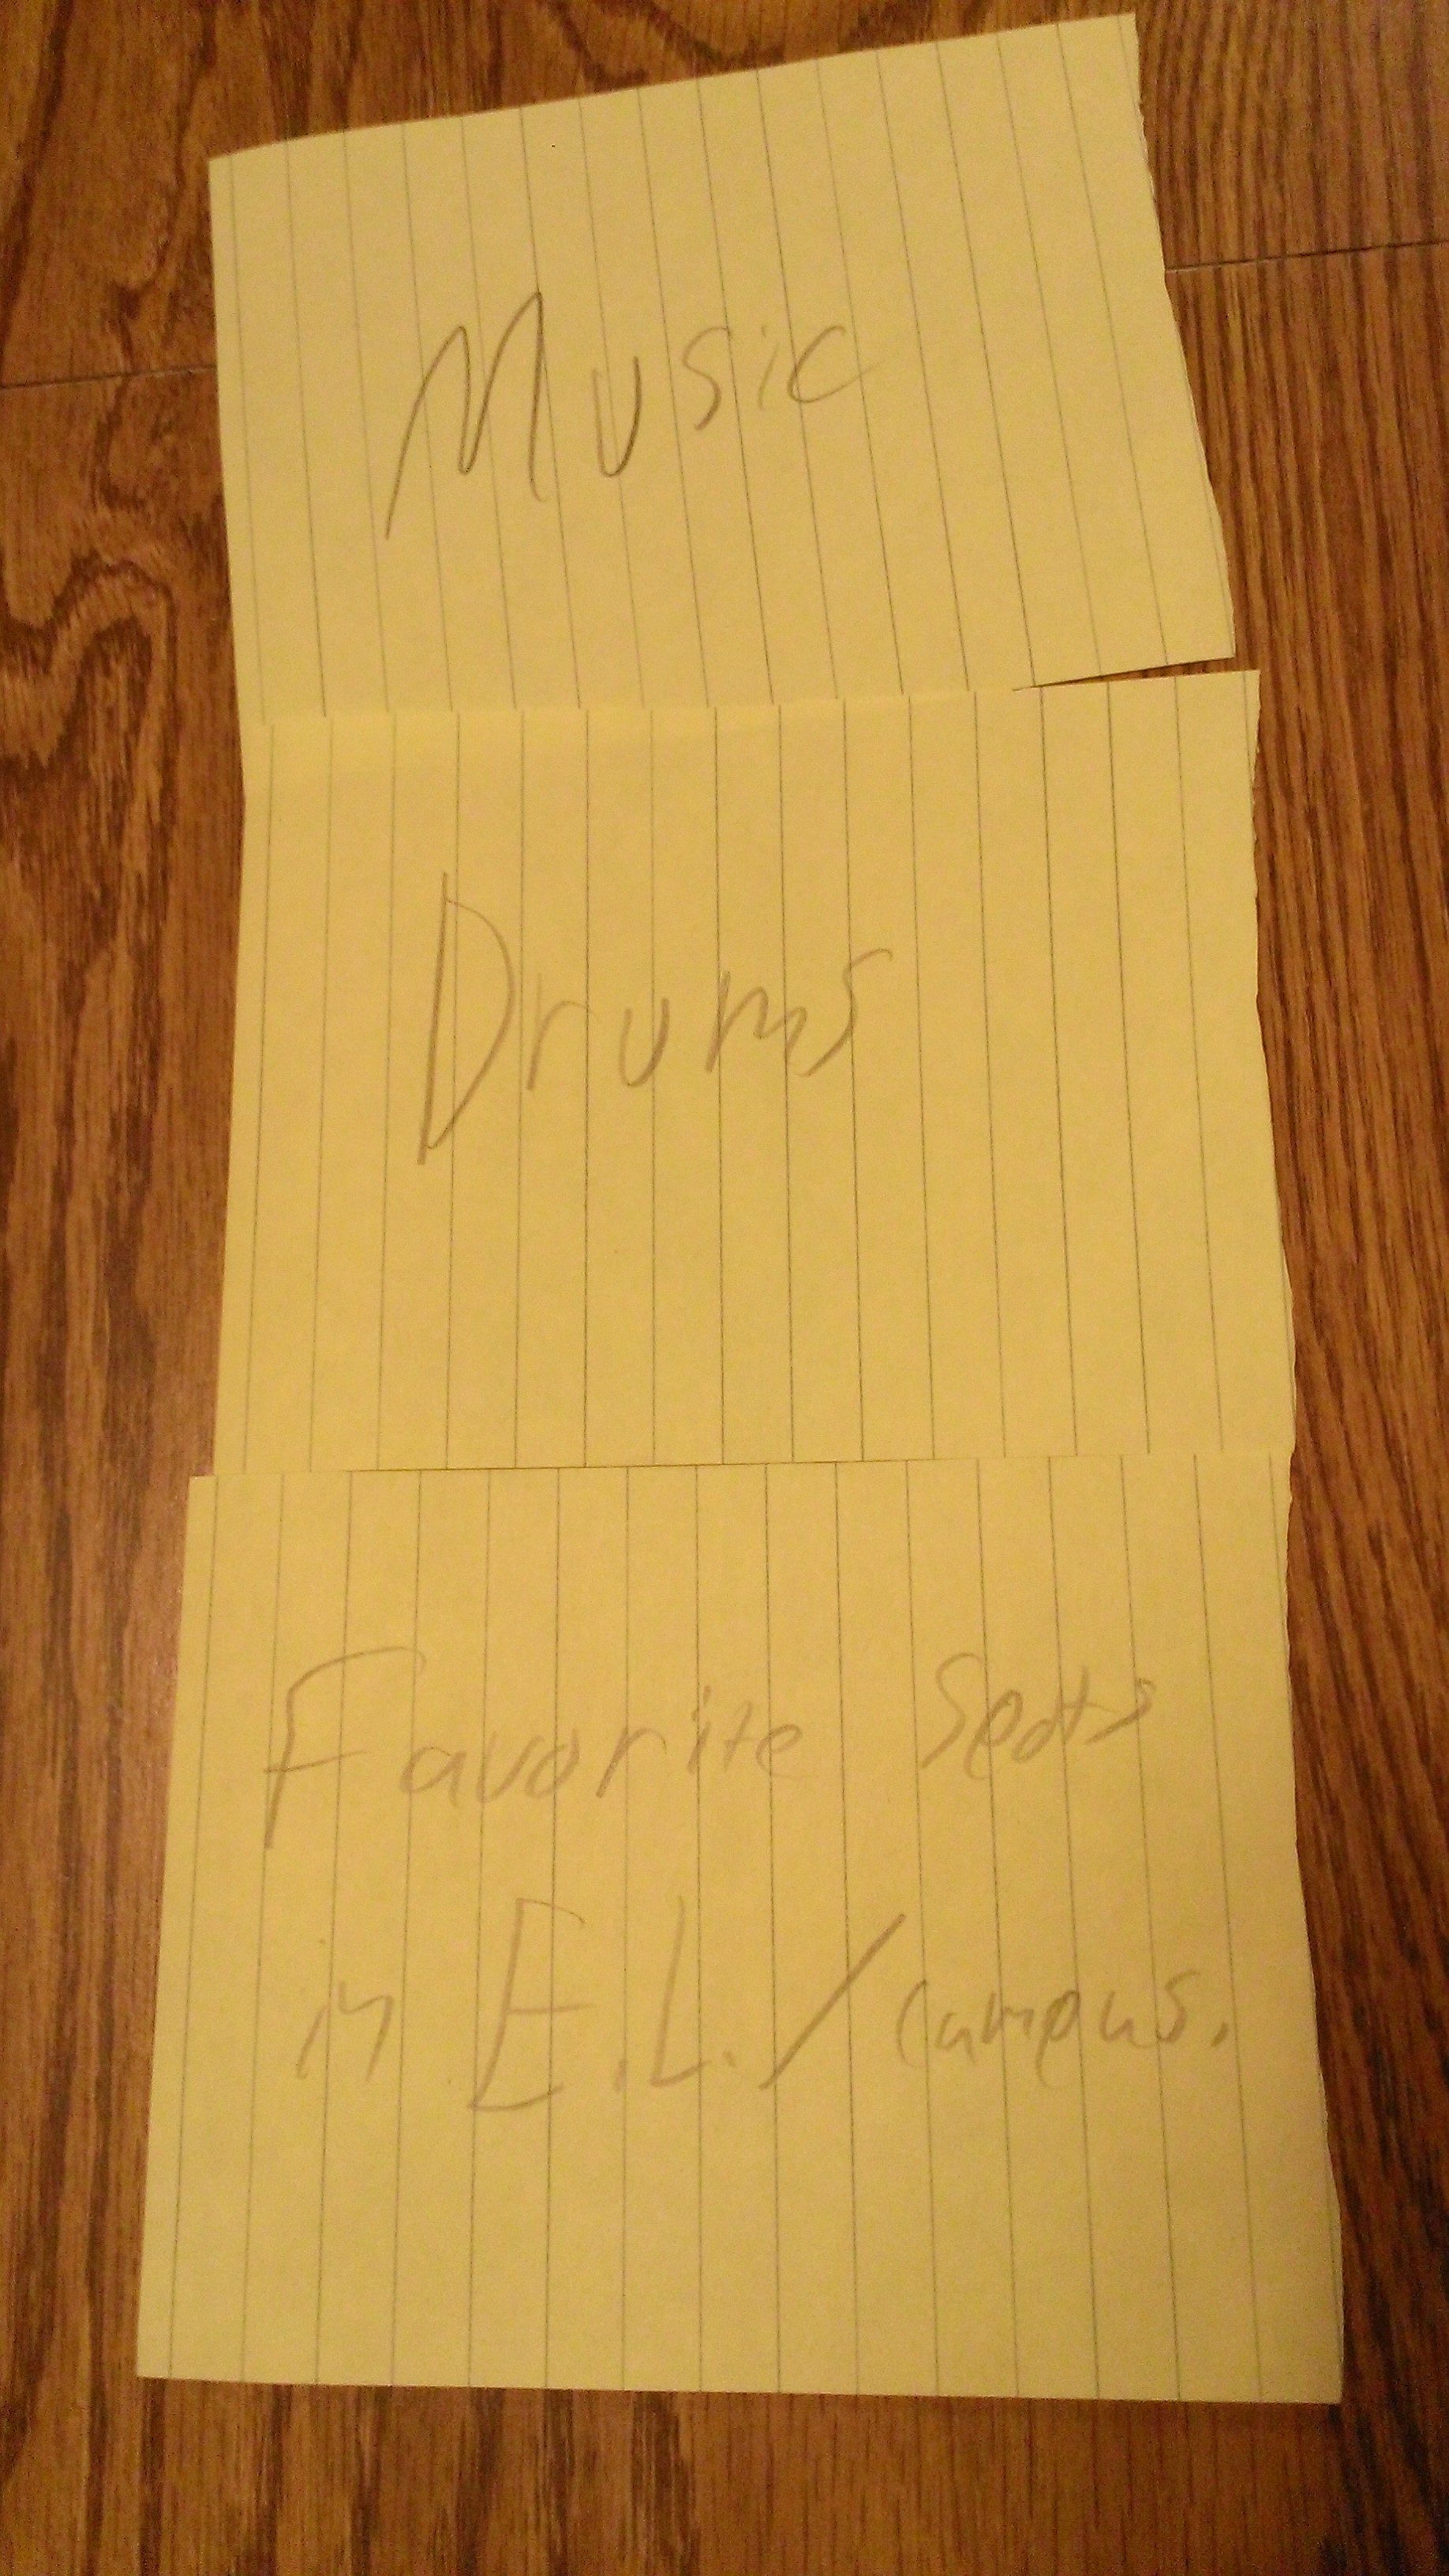 Music
Drums
Favorite Seats
in E.L./campus.